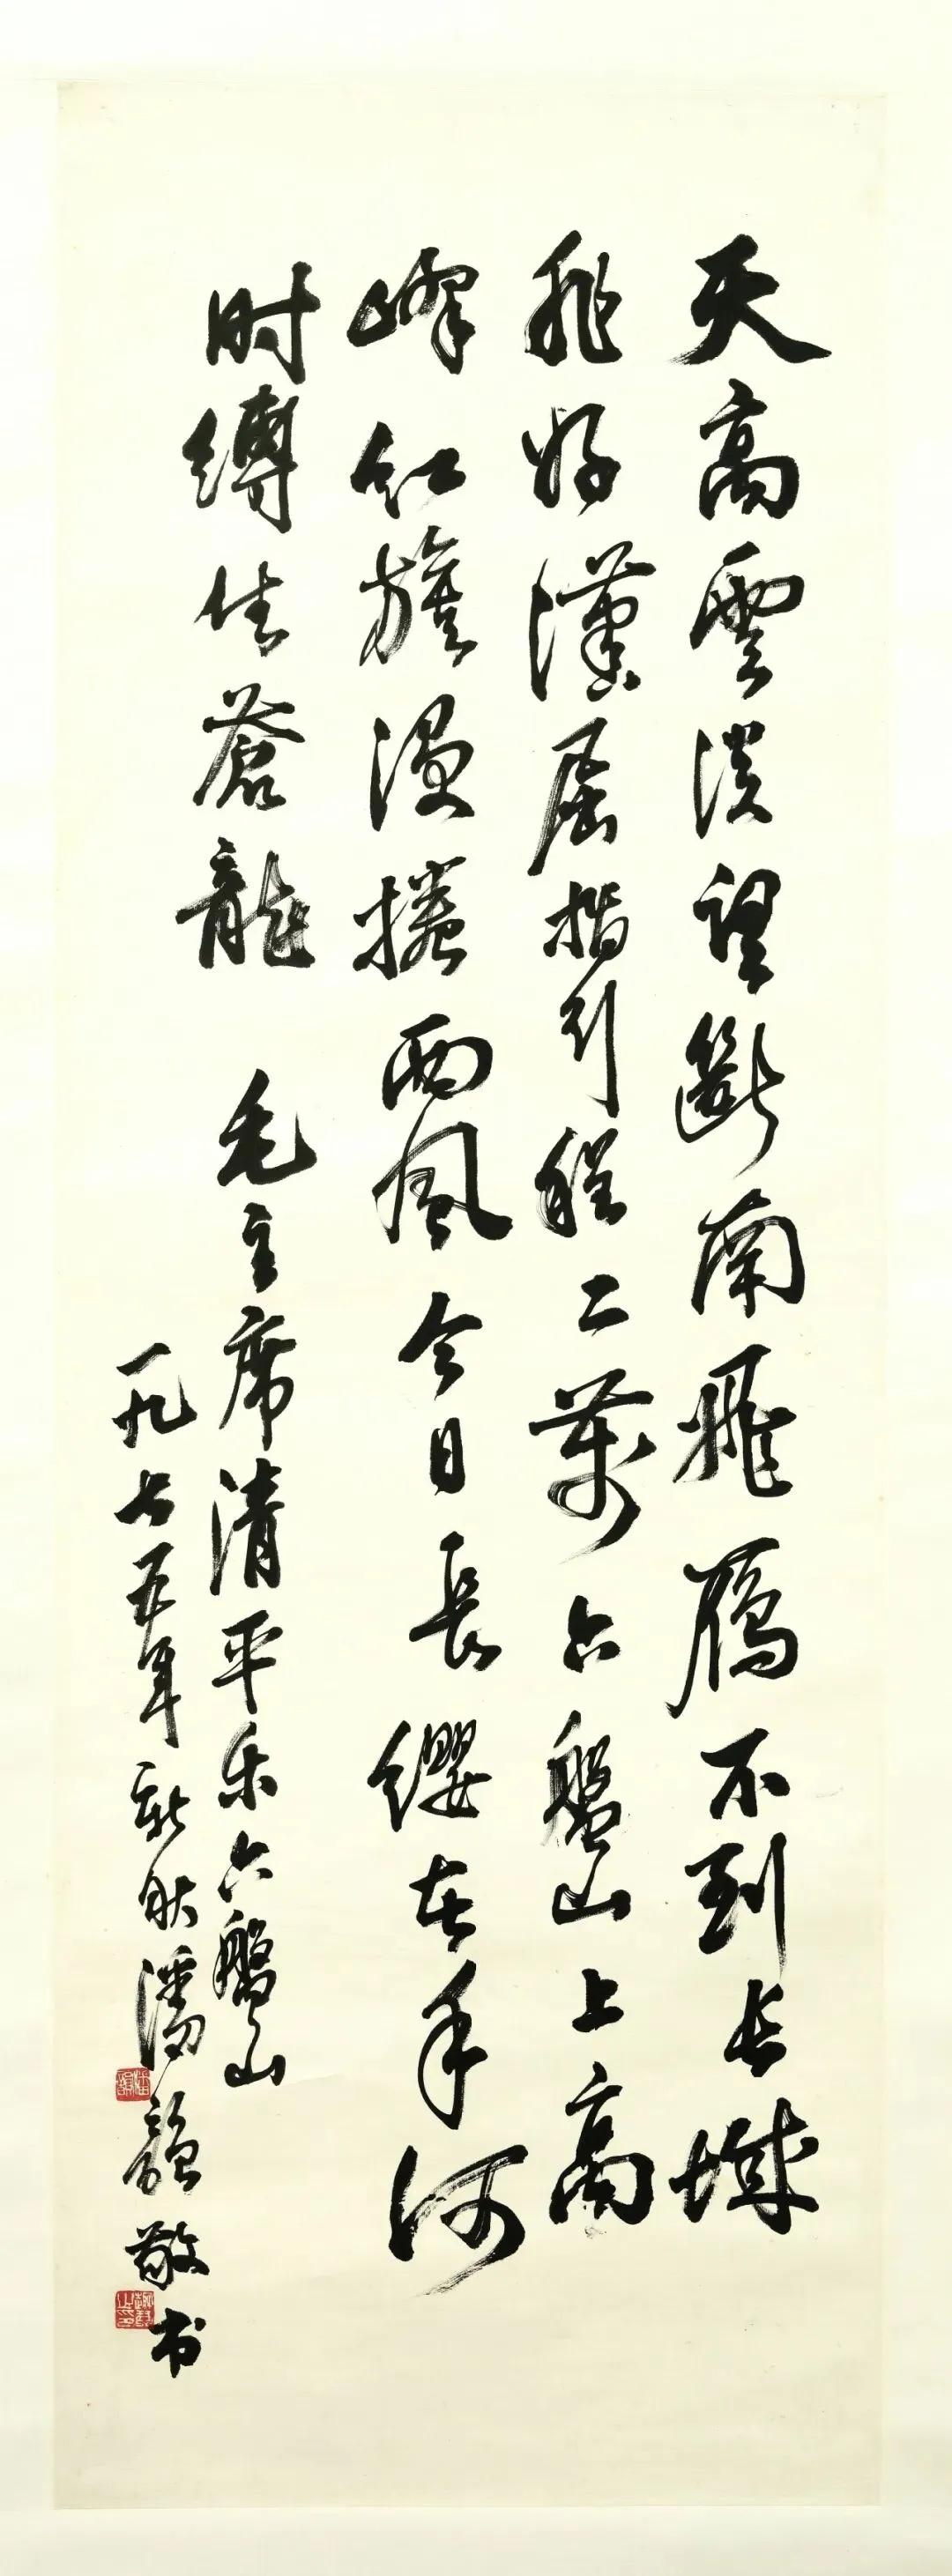 天高雲淡望斷南飛鴈不到长城
非好漢屈指行程二萬六盤山上高
峰红旗漫捲西風今日長纓在手何
时縛住蒼龍 毛主席清平乐六盤山
一九七五年新秋潘韻敬书